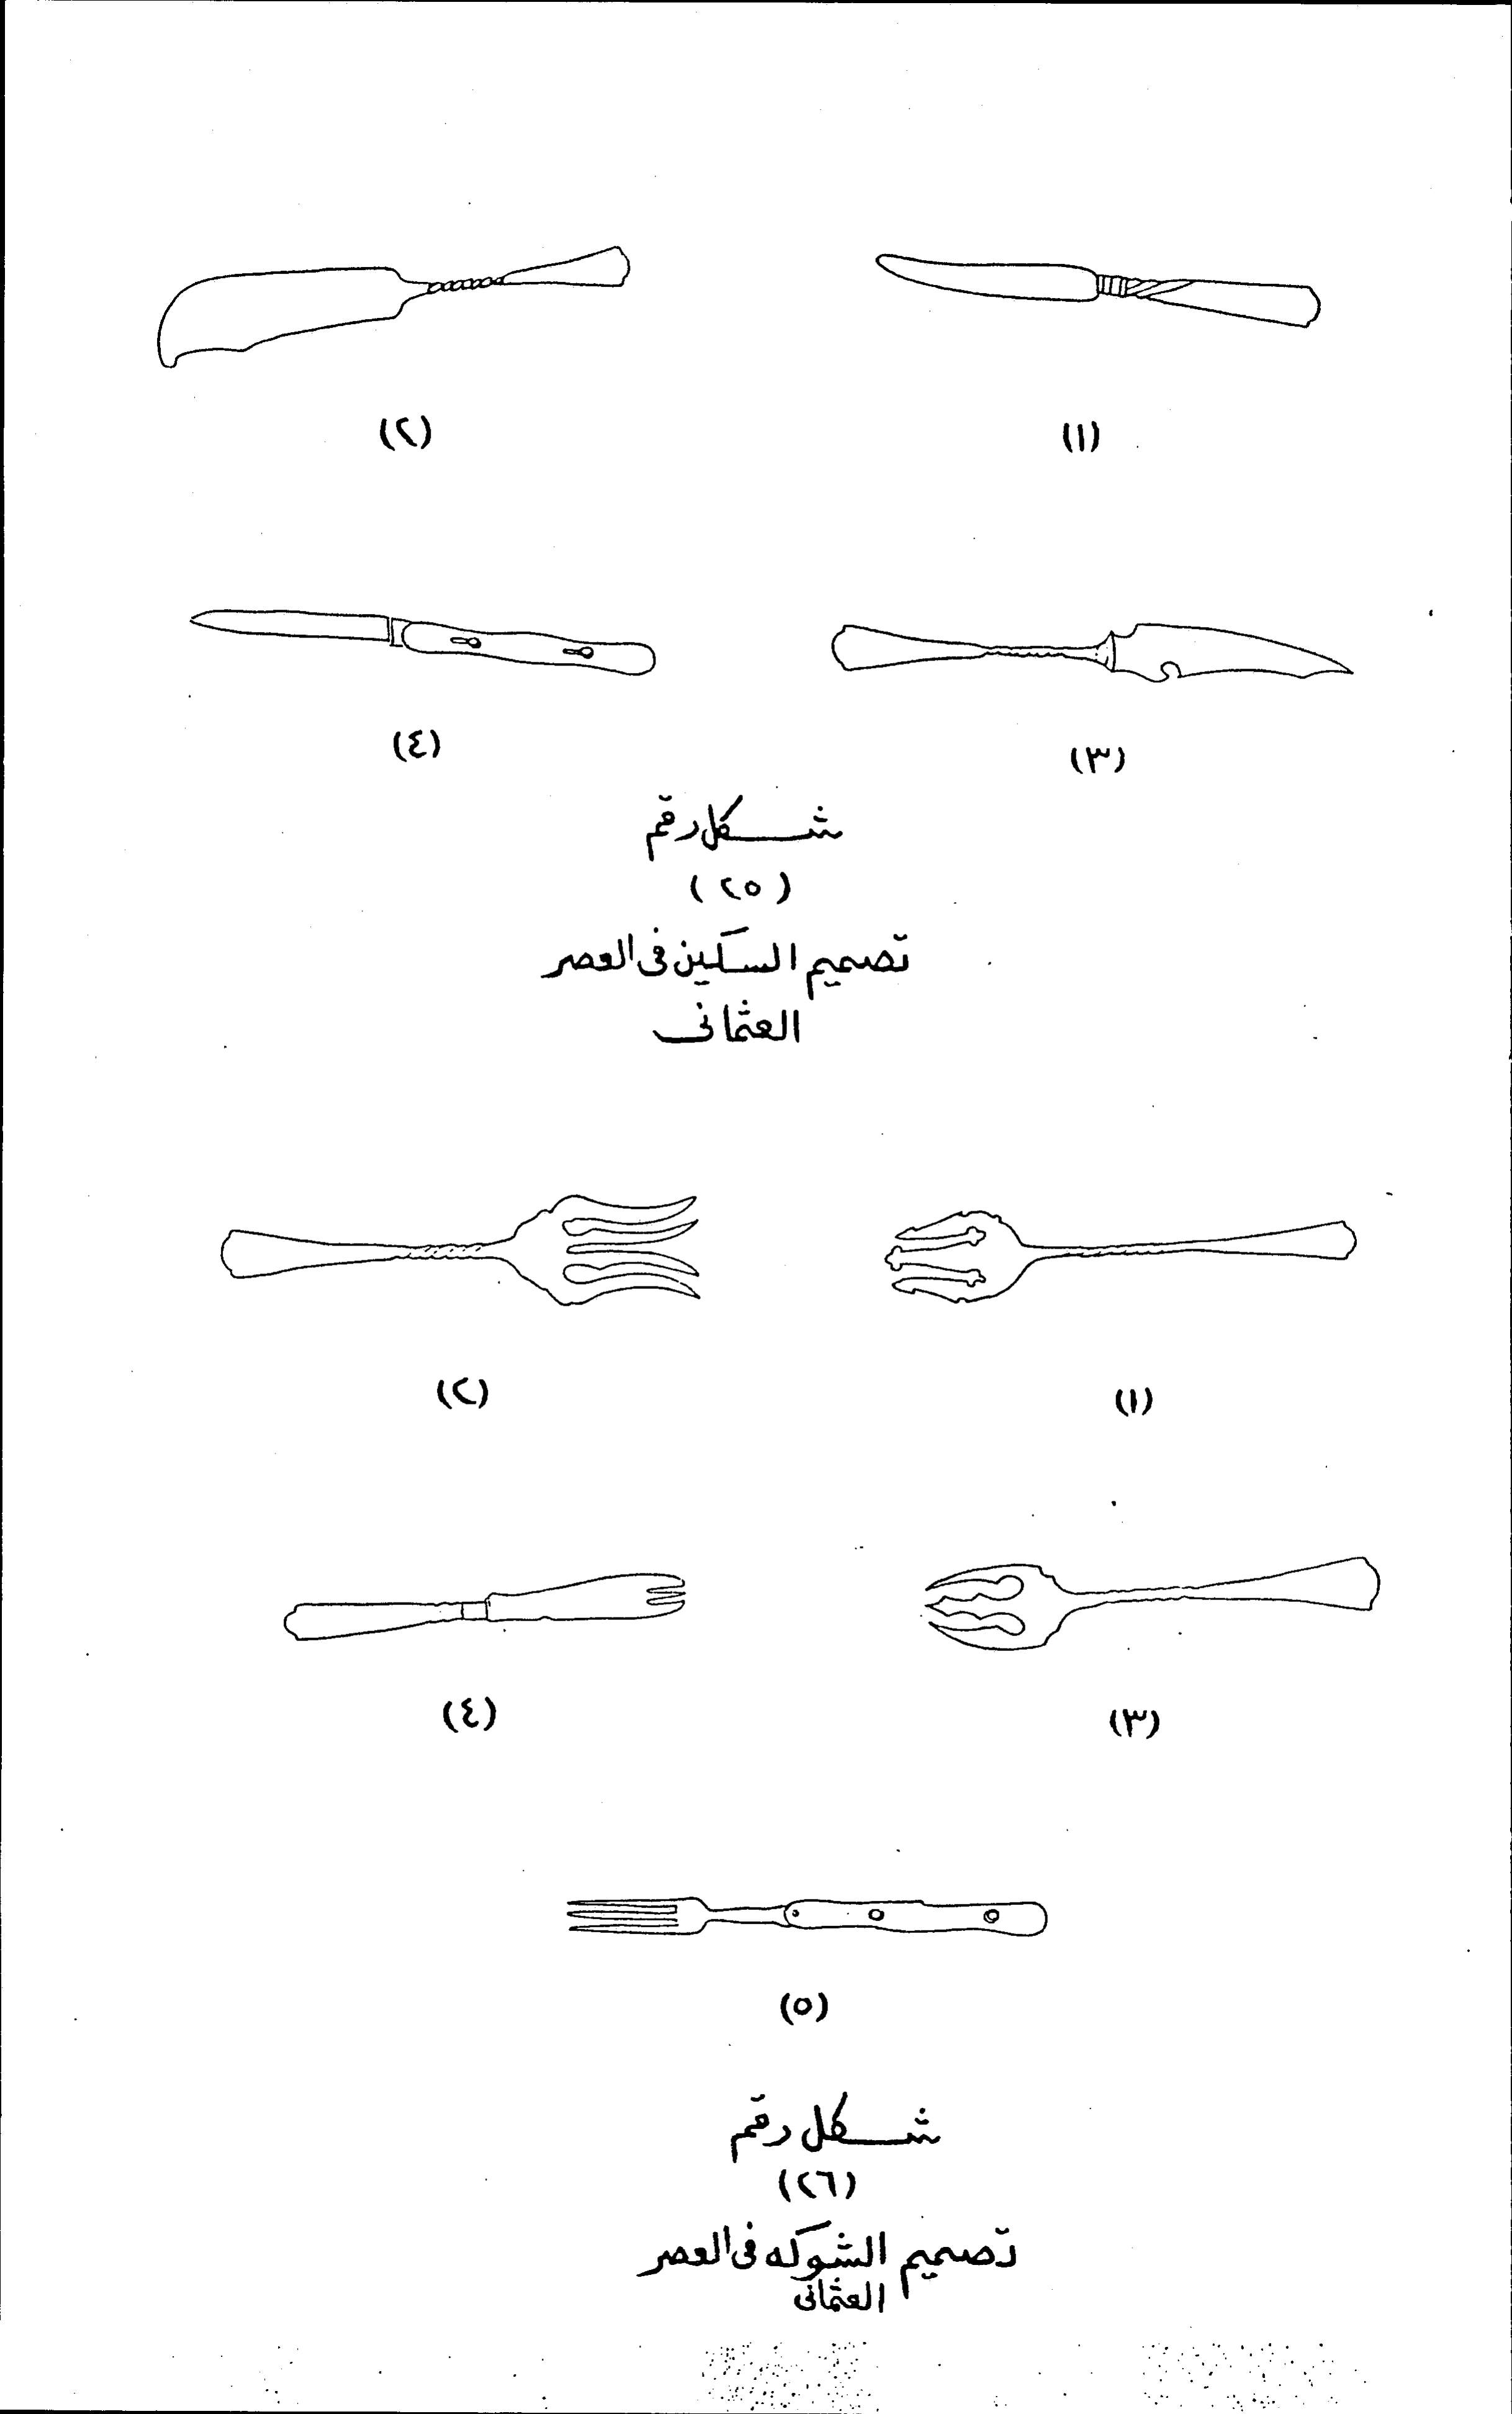 (١)
(٢)
(٣)
(٤)
شكل رقم
(٢٥)
تصميم السكين فى العصر
العثمانى
(١)
(٢)
(٣)
(٤)
(٥)
شكل رقم
(٢٦)
تصميم الشوكه فى العصر
العثمانى